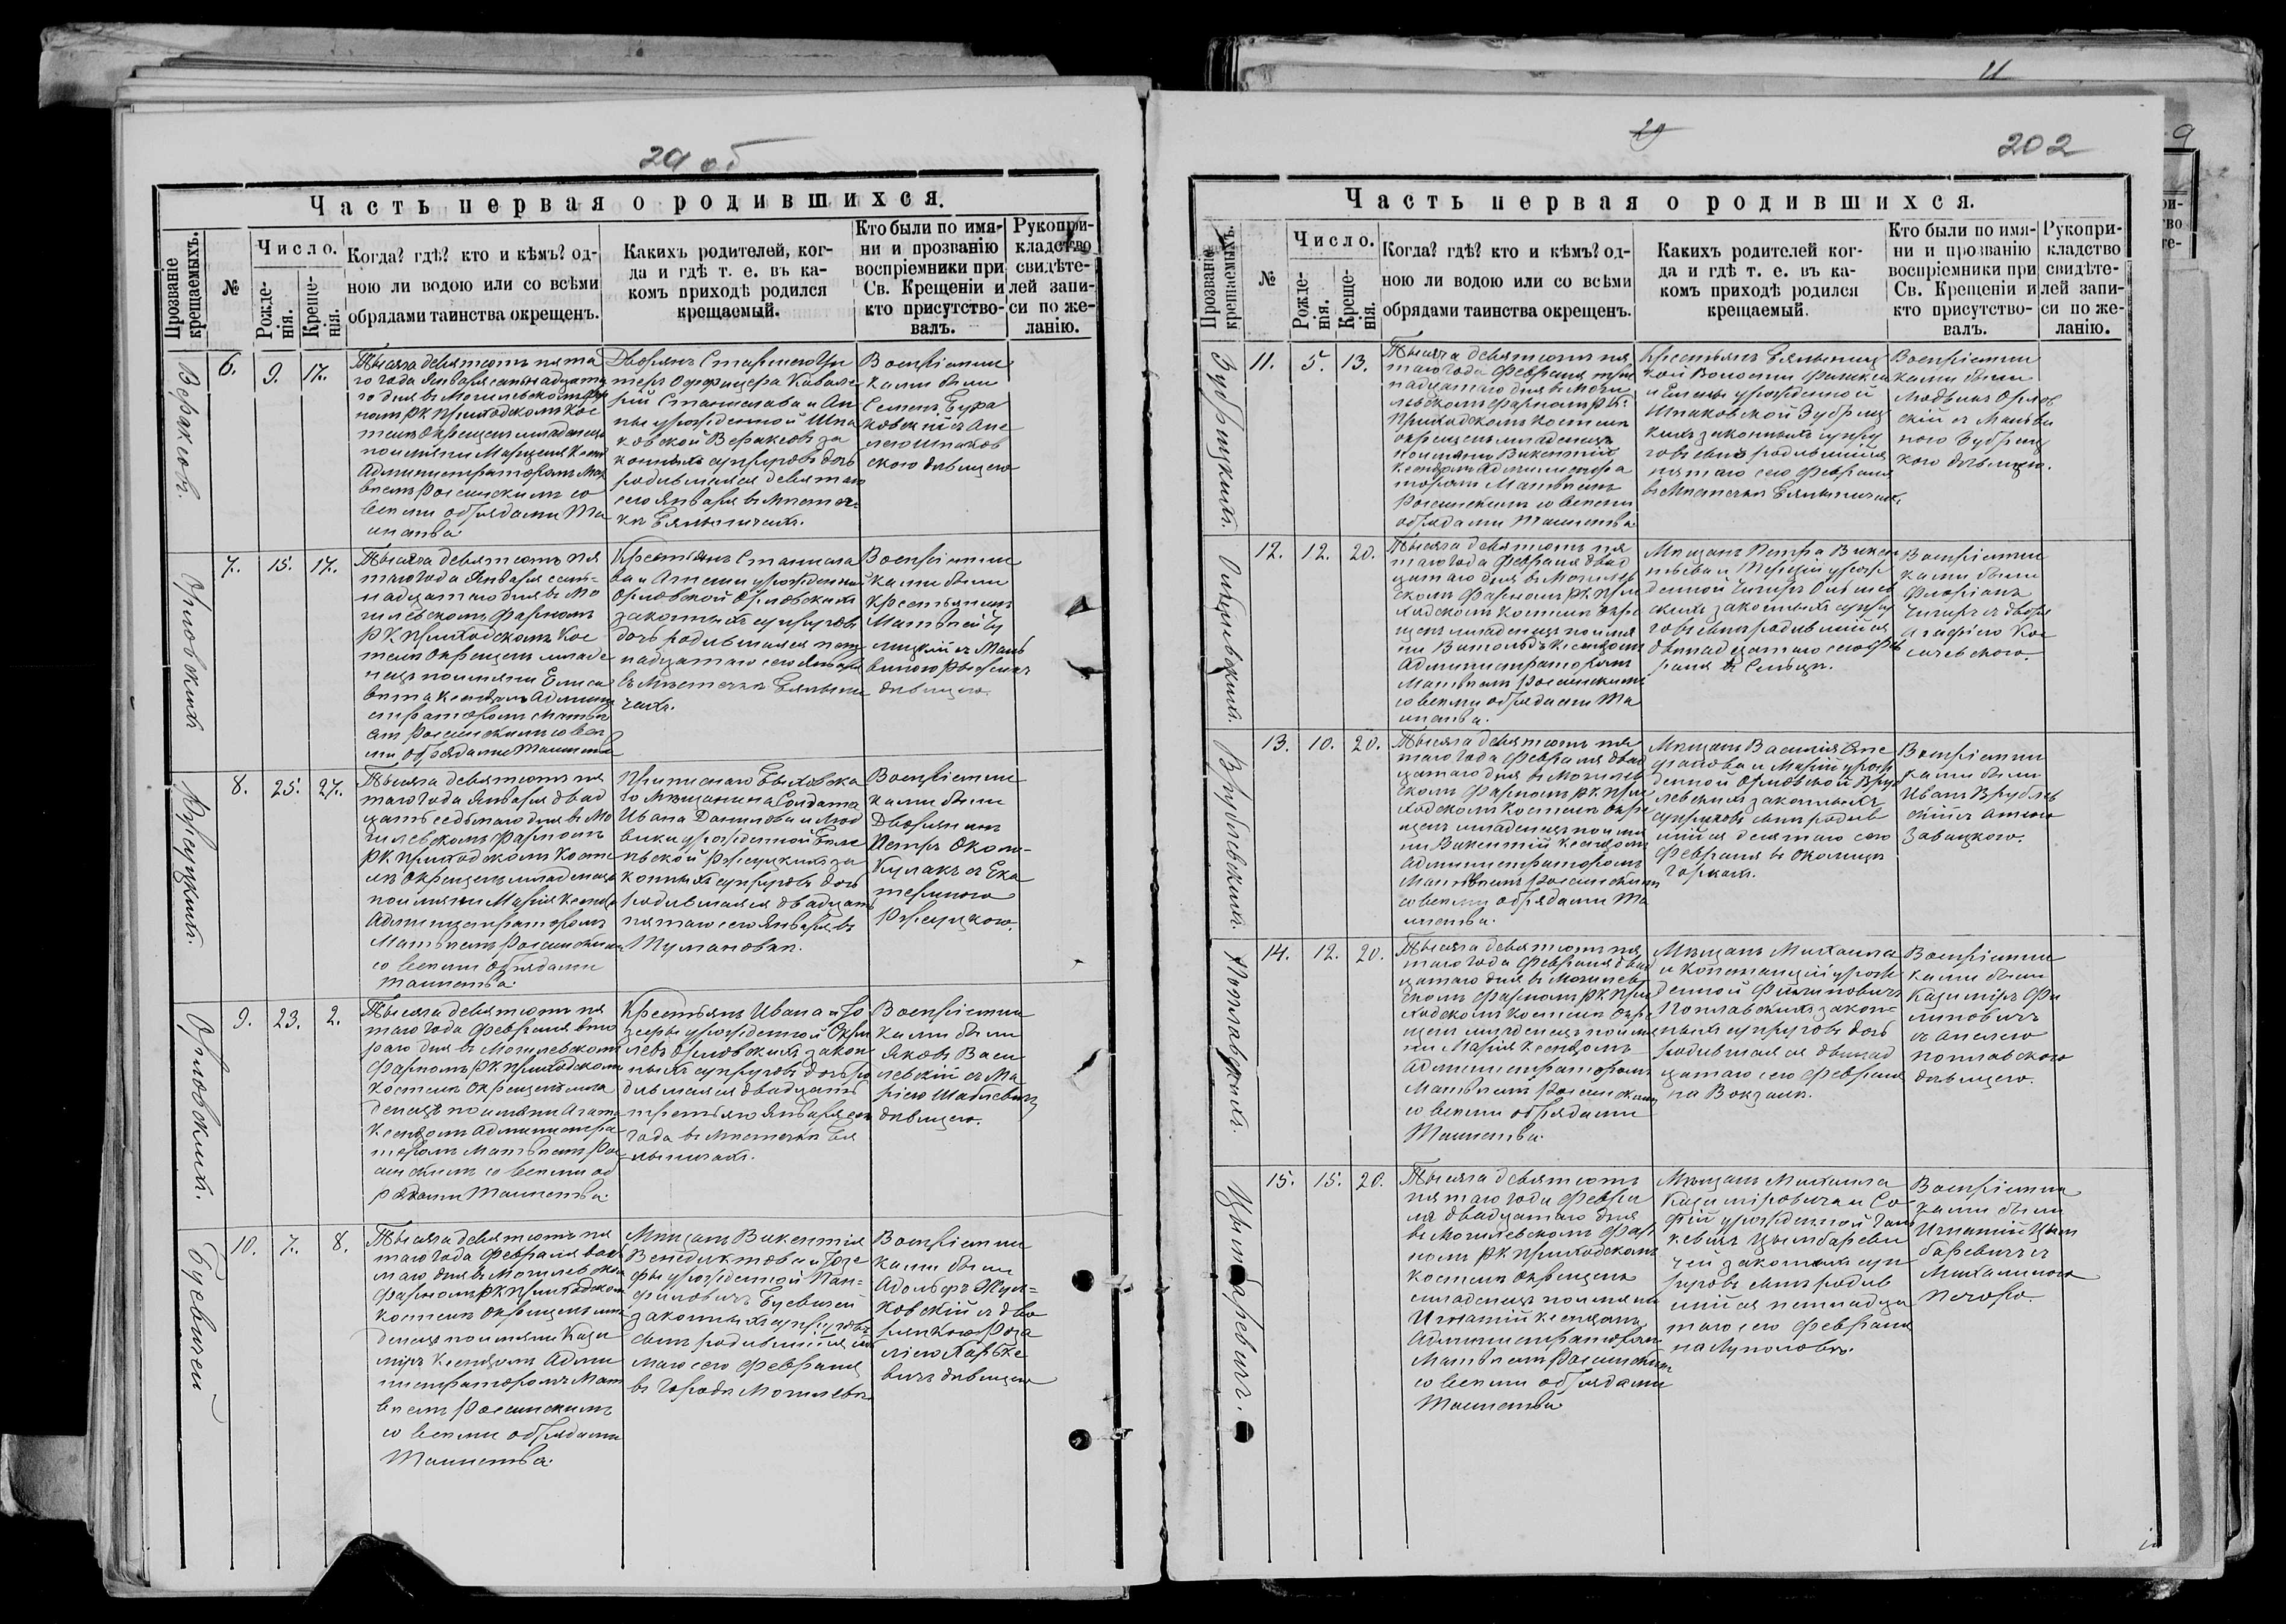 29 об
Часть первая о родившихся.
Прозваніе крещаемыхъ.
№
Число.
Рожде-
нія.
Креще-
нія.
Когда? гдѣ? кто и кѣмъ? од-
ною ли водою или со всѣми
обрядами таинства окрещенъ.
Какихъ родителей, ког-
да и гдѣ т. е. въ ка-
комъ приходѣ родился
крещаемый.
Кто были по имя-
ни и прозванію
воспріемники при
Св. Крещеніи и
кто присутство-
валъ.
Рукопри-
кладство
свидѣте-
лей запи-
си по же-
ланію.
Вераксовъ.
6.
9.
17.
Тысяча девятьсотъ пята
го года Января семнадцата
го дня въ Могилевскомъ Фар
номъ РК Приходскомъ Кос
телѣ окрещенъ младенецъ
по имяни
Администраторомъ Мат
вѣемъ Росинскимъ со
всѣми обрядами Та
инства.
Дворянъ Старшего Ун
теръ Офицера Кавале
рій Станислава и Ан
ны урожденной Шпа
ковской Вераксовъ за
конныхъ супруговъ дочь
родившаяся девятаго
сего Января въ Мѣстеч-
кѣ Бялыничахъ.
Воспріемни
ками были
Семенъ Бура
ковскій съ Ане
лею Шпаков
скою дѣвицею
Орловскихъ
7.
15.
17.
Тысяча девятьсотъ пя
таго года Января семь=
надцатаго дня въ Мо
гилевскомъ Фарномъ
РК Приходскомъ Кос
телѣ окрещенъ младе
нецъ по имяни Елиса
вета Ксендзомъ Админи
страторомъ Матвѣ
емъ Росинскимъ со всѣ
ми обрядами Таинства
Крестьянъ Станисла
ва и урожденной
Орловской Орловскихъ
законныхъ супруговъ
дочь родившаяся пят
надцатаго сего Января
въ Мѣстечкѣ Бялыни
чахъ.
Воспріемни
ками были
Крестьянинъ
Матвѣй
съ Маль
виною
дѣвицею.
Ржеуцкихъ.
8.
25.
27.
Тысяча девятьсотъ пя
таго года Января двад
цать седьмаго дня въ Мо
гилевскомъ Фарномъ
РК Приходскомъ Косте
лѣ окрещенъ младенецъ
по имяни Марія Ксендз
Администраторомъ
Матвѣемъ Росинскимъ
со всѣми обрядами
Таинства.
Приписнаго Быховска
го Мѣщанина Солдата
Ивана Данилова и Люд
вики урожденной
Ржеуцкихъ за
конныхъ супруговъ дочь
родившаяся двадцать
пятаго сего Января въ
Пумановкѣ.
Воспріемни
ками были
Дворянинъ
Петръ Около-
Кулакъ съ Ека
териною
Ржеуцкою.
Орловскихъ.
9.
23.
2.
Тысяча девятьсотъ пя
таго года Февраля вто
раго дня въ Могилевскомъ
Фарномъ РК Приходскомъ
Костелѣ окрещенъ мла
денецъ по имяни Агата
Ксендзомъ Администра
торомъ Матвѣемъ Ро
синскимъ со всѣми об
рядами Таинства.
Крестьянъ Ивана и Іо
зефы урожденной
Орловскихъ закон
ныхъ супруговъ дочь ро
дившаяся двадцать
третьяго Января сего
года въ Мѣстечкѣ Бя
лыничахъ.
Воспріемни
ками были
Яковъ Васи
левскій съ Ма
ріею
дѣвицею.
Буевичей
10.
7.
8.
Тысяча девятьсотъ пя
таго года Февраля вось
маго дня въ Могилевском
Фарномъ РК Приходскомъ
Костелѣ окрещенъ мла
денецъ по имяни Кази
міръ Ксендзомъ Адми
нистраторомъ Мат
вѣемъ Росинскимъ
со всѣми обрядами
Таинства.
Мѣщанъ Викентія
Венедиктова и Іозе
фы урожденной Пан=
филовичъ Буевичей
законныхъ супруговъ
сынъ родившійся седь
маго сего Февраля
въ городѣ Могилевѣ
Воспріемни
ками были
Адольфъ Жук=
ковскій съ дво
рянкою Роза
ліею Харьке
вичъ дѣвицею
202
Часть первая о родившихся.
Прозваніе крещаемыхъ.
№
Число.
Рожде-
нія.
Креще-
нія.
Когда? гдѣ? кто и кѣмъ? од-
ною ли водою или со всѣми
обрядами таинства окрещенъ.
Какихъ родителей ког-
да и гдѣ т. е. въ ка-
комъ приходѣ родился
крещаемый.
Кто были по имя-
ни и прозванію
воспріемники при
Св. Крещеніи и
кто присутство-
валъ.
Рукопри-
кладство
свидѣте-
лей запи-
си по же-
ланію.
Зубрицкихъ.
11.
5.
13.
Тысяча девятьсотъ пя
таго года Февраля трин
надцатаго дня въ Моги
левскомъ Фарномъ РК.
Приходскомъ Костелѣ
окрещенъ младенецъ
по имяни Викентій
Ксендзомъ Администра
торомъ Матвѣемъ
Росинскимъ со всѣми
обрядами Таинства.
Крестьянъ Бялыниц
кой Волости
и Елены урожденной
Шпаковской Зубриц
кихъ законныхъ супру
говъ сынъ родившійся
пятаго сего Февраля
въ Мѣстечкѣ Бялыничахъ.
Воспріемни
ками были
Людвикъ Орлов
скій съ Мальви
ною Зубриц
кою дѣвицею.
12.
12.
20.
Тысяча девятьсотъ пя
таго года Февраля двад
цатаго дня въ Могилев
скомъ Фарномъ РК При
ходскомъ Костелѣ окре
щенъ младенецъ по имя
ни Витольдъ Ксендзомъ
Администраторомъ
Матвѣемъ Росинскимъ
со всѣми обрядами Та
инства.
Мѣщанъ Петра Викен
тьева и урож
денной Чигиръ
скихъ законныхъ супру
говъ сынъ родившійся
двѣнадцатаго сего Фев
раля въ
Воспріемни
ками были
Флоріанъ
Чигиръ съ
Агафіею Кос
сачевскою.
Врублевскихъ.
13.
10.
20.
Тысяча девятьсотъ пя
таго года Февраля двад
цатаго дня въ Могилев
скомъ Фарномъ РК При
ходскомъ Костелѣ окре
щенъ младенецъ по имя
ни Викентій Ксендзомъ
Администраторомъ
Матвѣемъ Росинскимъ
со всѣми обрядами Та
инства.
Мѣщанъ Василія Сте
фанова и Маріи урож
денной Орловской Вруб
левскихъ законныхъ
супруговъ сынъ родив
шійся десятаго сего
Февраля въ Околицѣ
Горкахъ.
Воспріемни
ками были
Иванъ Врублев
скій съ Анною
Завацкою.
Поплавскихъ.
14.
12.
20.
Тысяча девятьсотъ пя
таго года Февраля двад
цатаго дня въ Могилев
скомъ Фарномъ РК При
ходскомъ Костелѣ окре
щенъ младенецъ по имя
ни Марія Ксендзомъ
Администраторомъ
Матвѣемъ Росинскимъ
со всѣми обрядами
Таинства.
Мѣщанъ Михаила
и Констанціи урож
денной Филиповичъ
Поплавскихъ закон
ныхъ супруговъ дочь
родившаяся двѣнад
цатаго сего Февраля
на Вокзалѣ.
Воспріемни
ками были
Казиміръ Фи
липовичъ
съ Анелею
Поплавскою
дѣвицею.
Цымбаревичъ.
15.
15.
20.
Тысяча девятьсотъ
пятаго года Февра
ля двадцатаго дня
въ Могилевскомъ Фар
номъ РК Приходскомъ
Костелѣ окрещенъ
младенецъ по имяни
Игнатій Ксендзомъ
Администраторомъ
Матвѣемъ Росинскимъ
со всѣми обрядами
Таинства.
Мѣщанъ Михаила
Казиміровича и Со
фіи урожденной
Цымбареви
чей законныхъ суп
руговъ сынъ родив
шійся пятнадца
таго сего Февраля
на Луполовѣ.
Воспріемни
ками были
Игнатій Цым
баревичъ съ
Михалиною